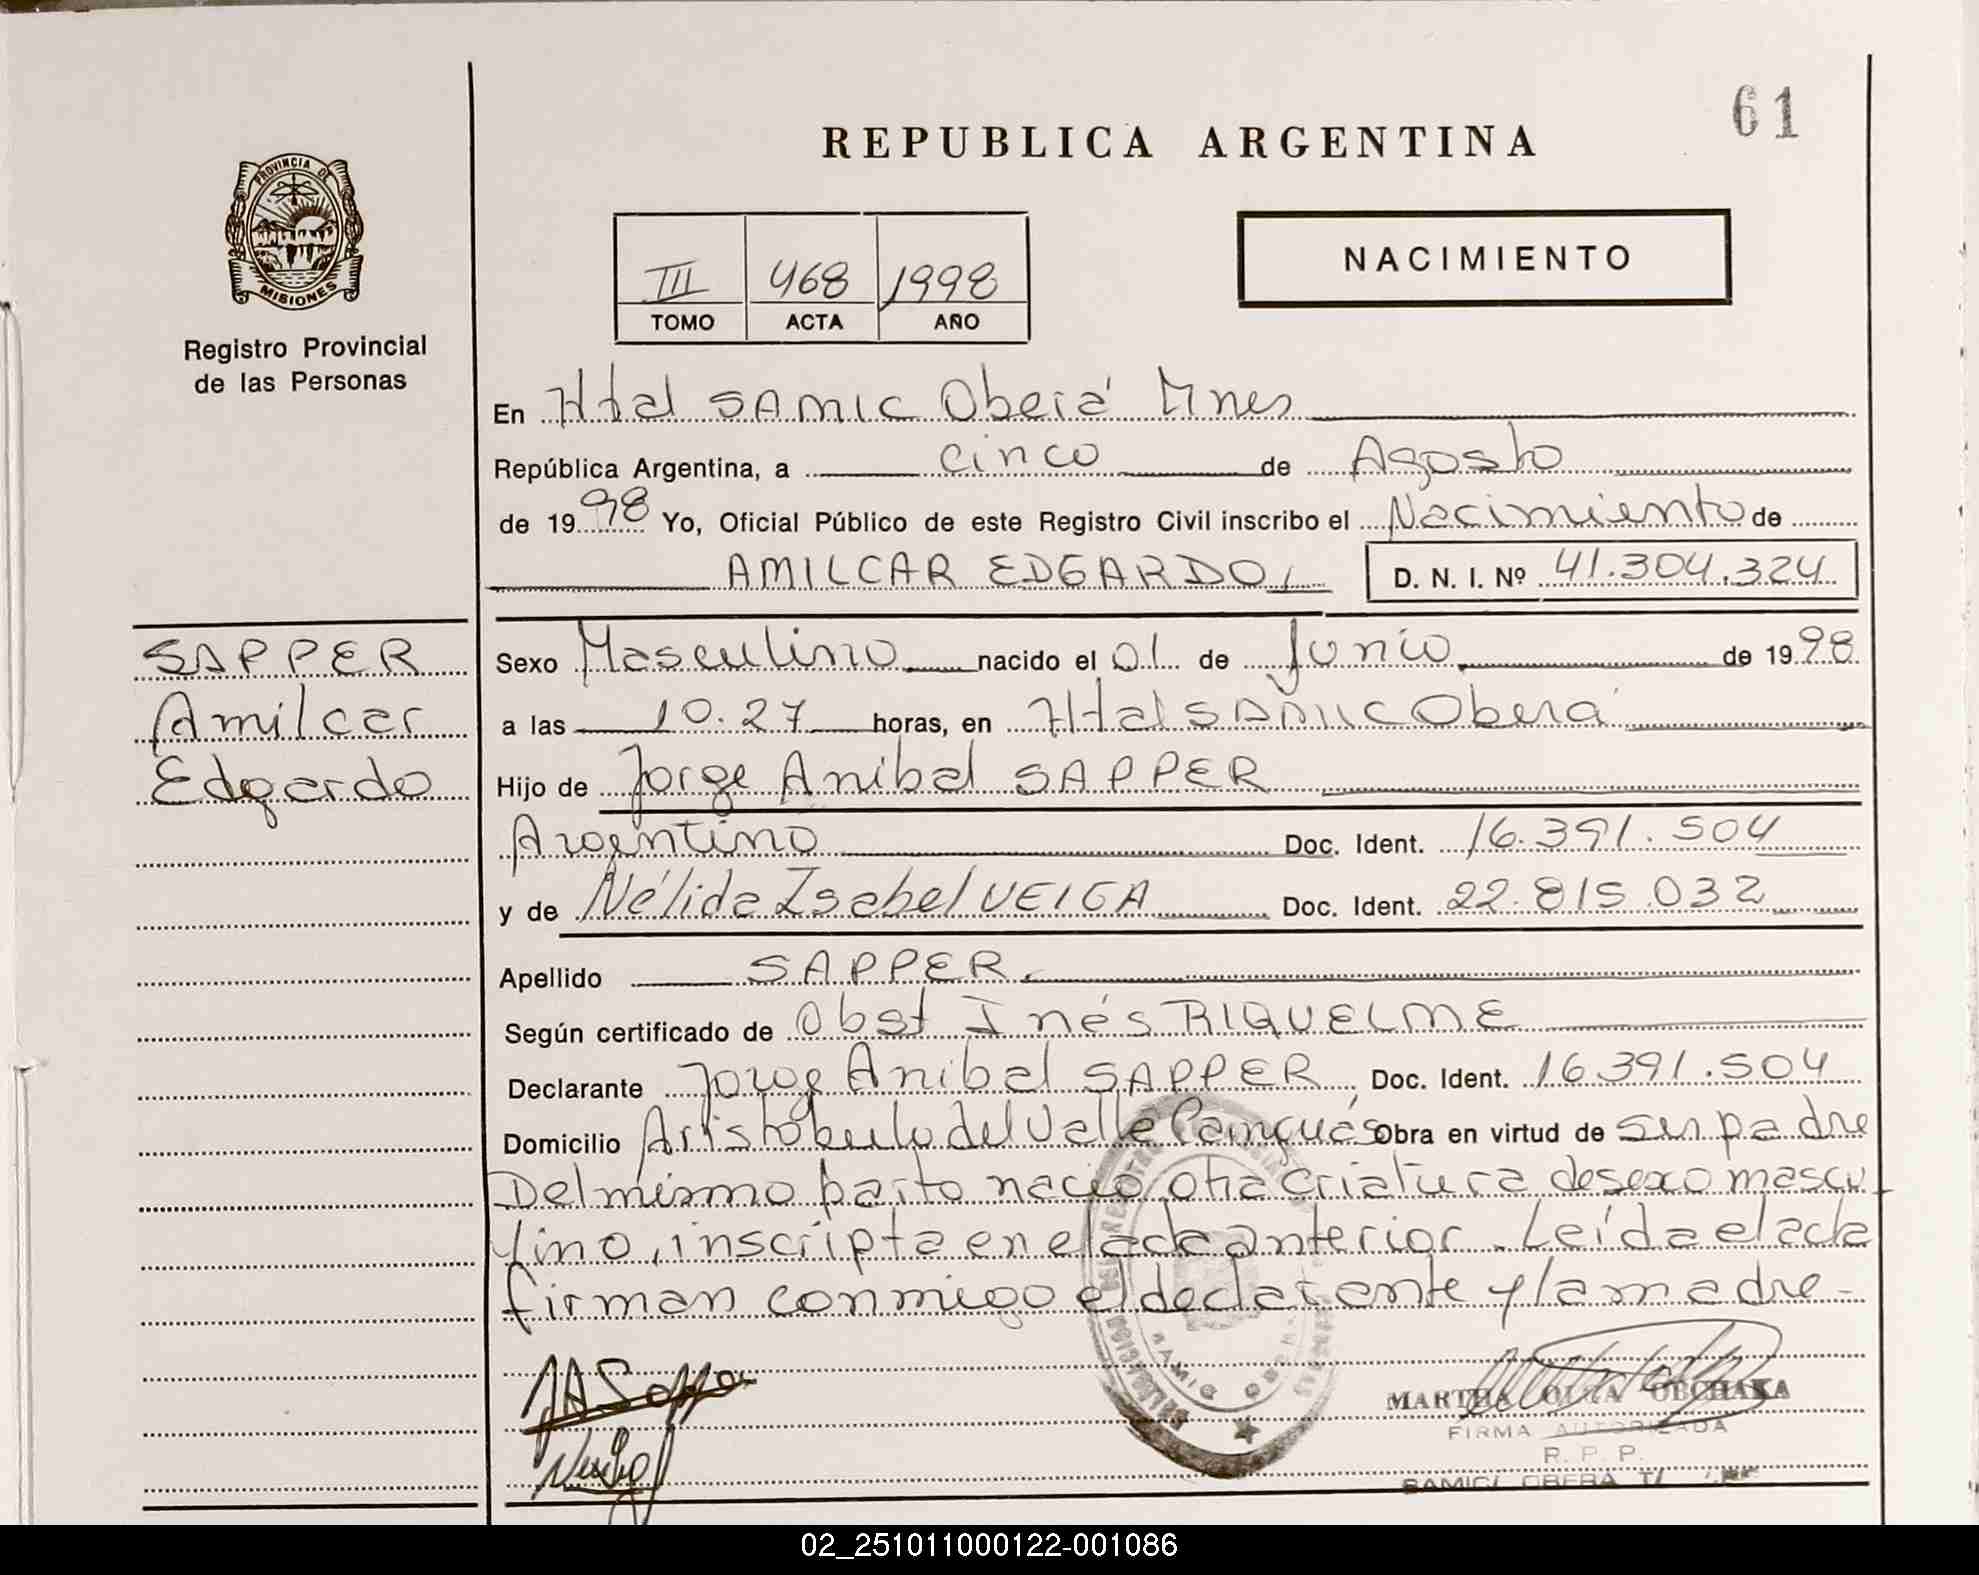 61
REPUBLICA ARGENTINA
PROVINCIA DE
MISIONES
Registro Provincial
de las Personas
NACIMIENTO
III 468 1998
TOMO ACTA AÑO
En Htal SAMIC Oberá Mnes
República Argentina, a cinco de Agosto
de 1998 Yo, Oficial Público de este Registro Civil inscribo el Nacimiento de
AMILCAR EDGARDO, D. N. I. Nº 41.304.324
SAPPER
Amilcar
Edgardo
Sexo Masculino nacido el 01 de Junio de 1998
a las 10.27 horas, en Htal SAMIC Oberá
Hijo de Jorge Anibal SAPPER
Argentino Doc. Ident. 16.391.504
y de Nélida Isabel VEIGA Doc. Ident. 22.815.032
Apellido SAPPER.
Según certificado de Obst Inés RIQUELME
Declarante Jorge Anibal SAPPER Doc. Ident. 16391.504
Domicilio Aristóbulo del Valle Caingués Obra en virtud de ser padre
Del mismo parto nació otra criatura de sexo mascu
lino, inscripta en el acta anterior. Leída el acta
firman conmigo el declarante y la madre-
MARTHA OLGA
FIRMA AUTORIZADA
R. P. P.
SAMIC/ OBERA
02_251011000122-001086